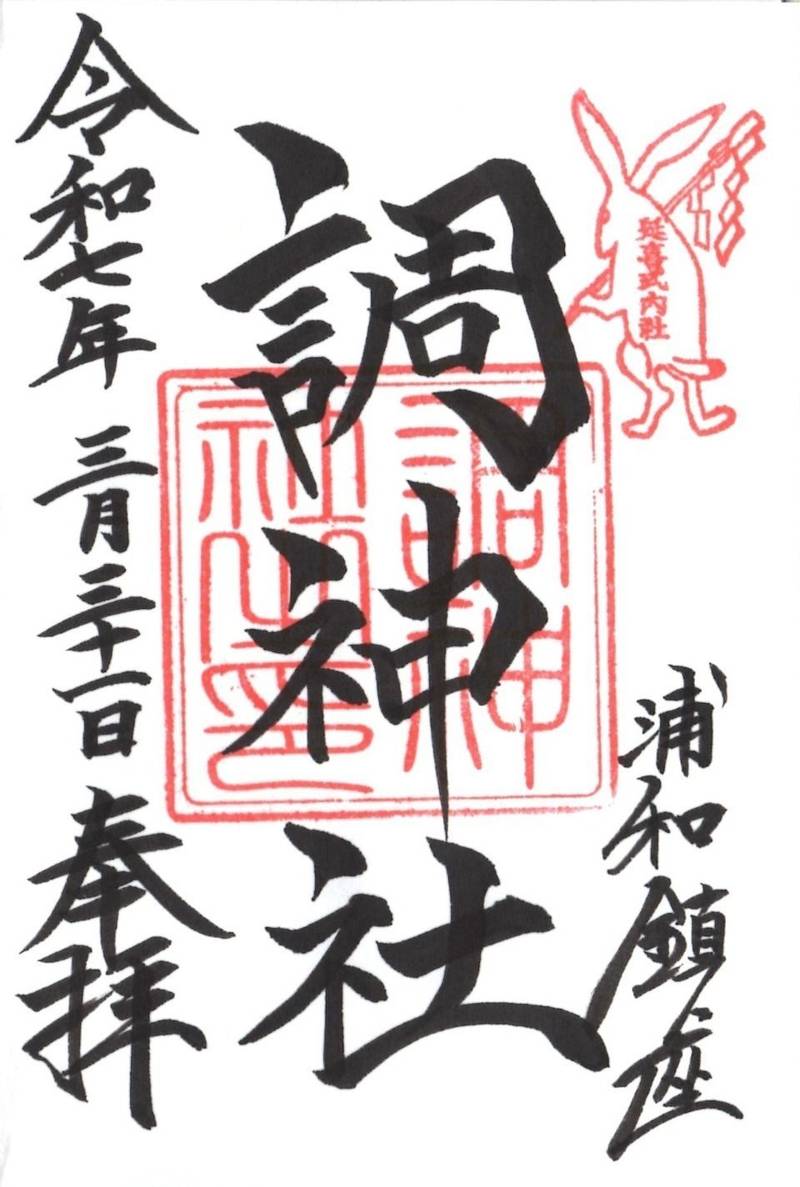 延喜式内社
浦和鎮座
調神社
調神
社之印
令和七年 三月三十一日 奉拝